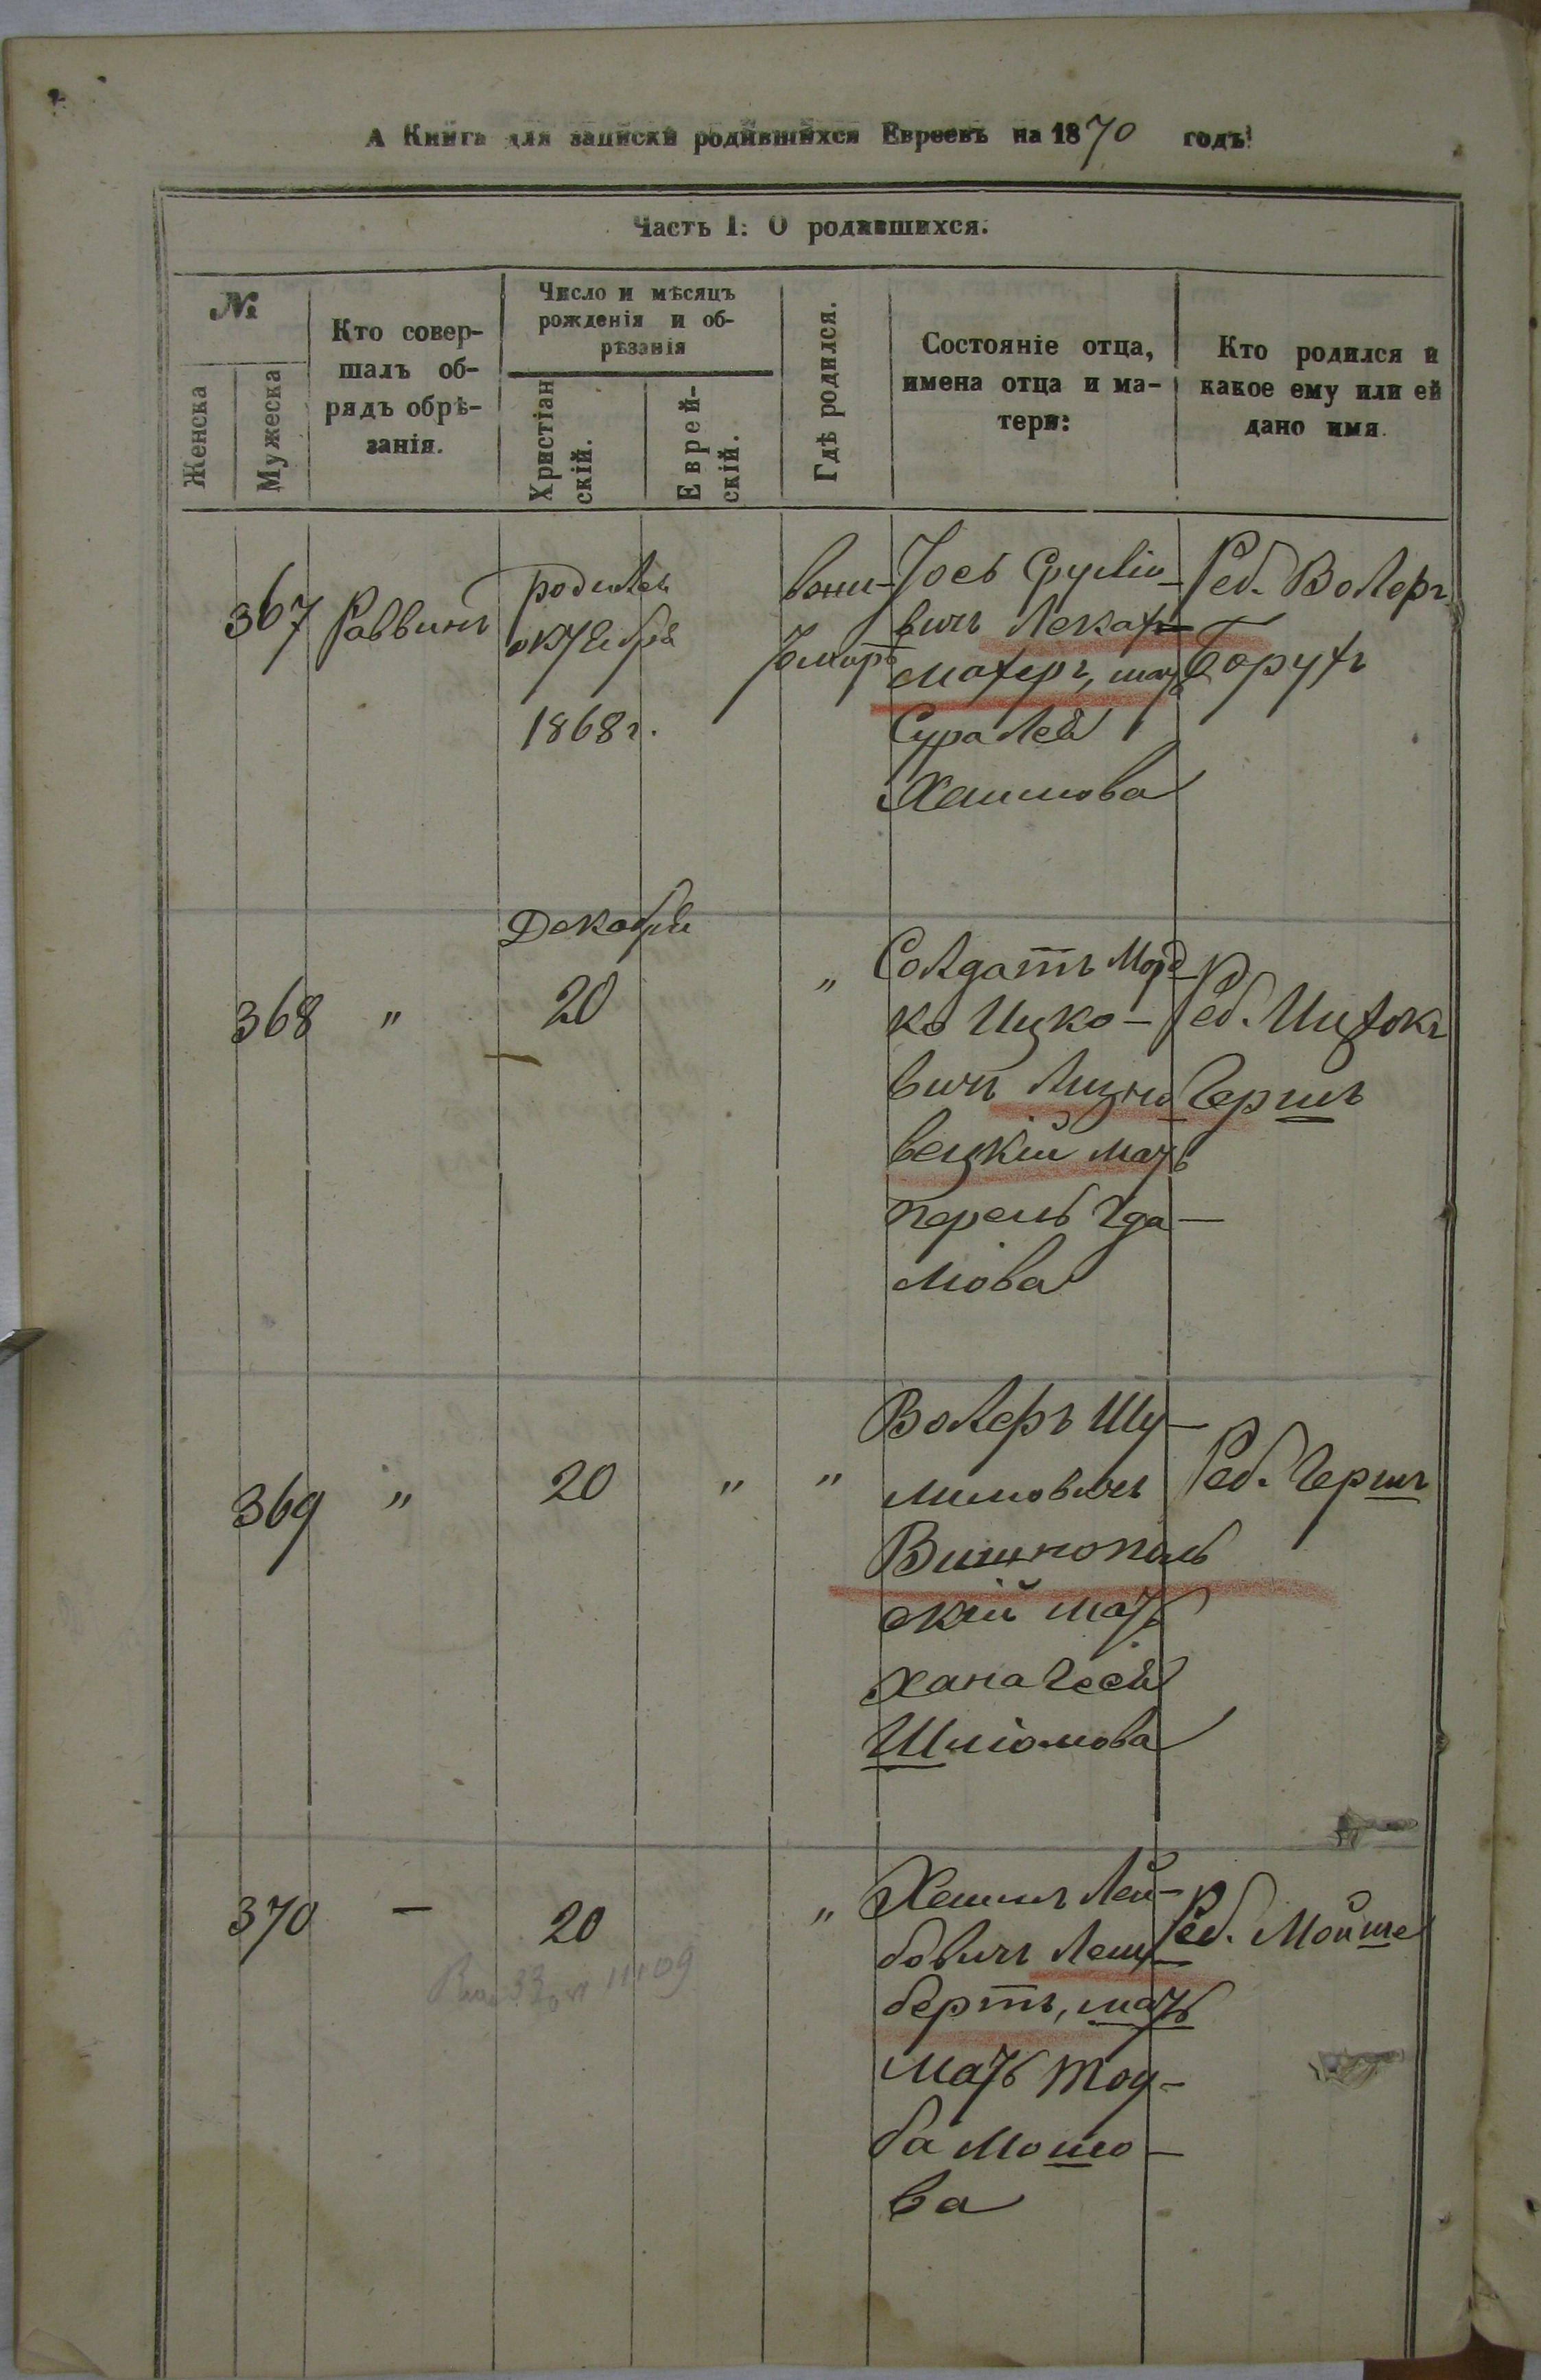 А Книга для записки родившихся Евреевъ на 1870 годъ:
Часть I: О родившихся.
№
Женска
Мужеска
Кто совер-
шалъ об-
рядъ обрѣ-
занія.
Число и мѣсяцъ
рожденія и об-
рѣзанія
Христіан
скій.
Еврей-
скій.
Гдѣ родился.
Состояніе отца,
имена отца и ма-
тери:
Кто родился и
какое ему или ей
дано имя.
367
Раввинъ
родился
октября
1868 г.
Іось Срулio-
вичъ Лекахъ
махеръ, мать
Сура Лея
Хаимова
Реб. Волеръ
Борухъ
368
"
Декабря
20
"
Солдатъ Морд
ко Ицко-
вичъ Лизно
вецкій мать
Перель Гда-
лiова
Реб. Ицхокъ
Гершъ
369
"
20
"
"
Волеръ Шу-
лимовичъ
Вишнополь
скій мать
Хана Гося
Шлiомова
Реб. Гершъ
370
-
20
"
Хаимъ Лей-
бовичъ Лем-
бертъ, мать
мать Тоу-
ба Мошо-
ва
Реб. Мойше